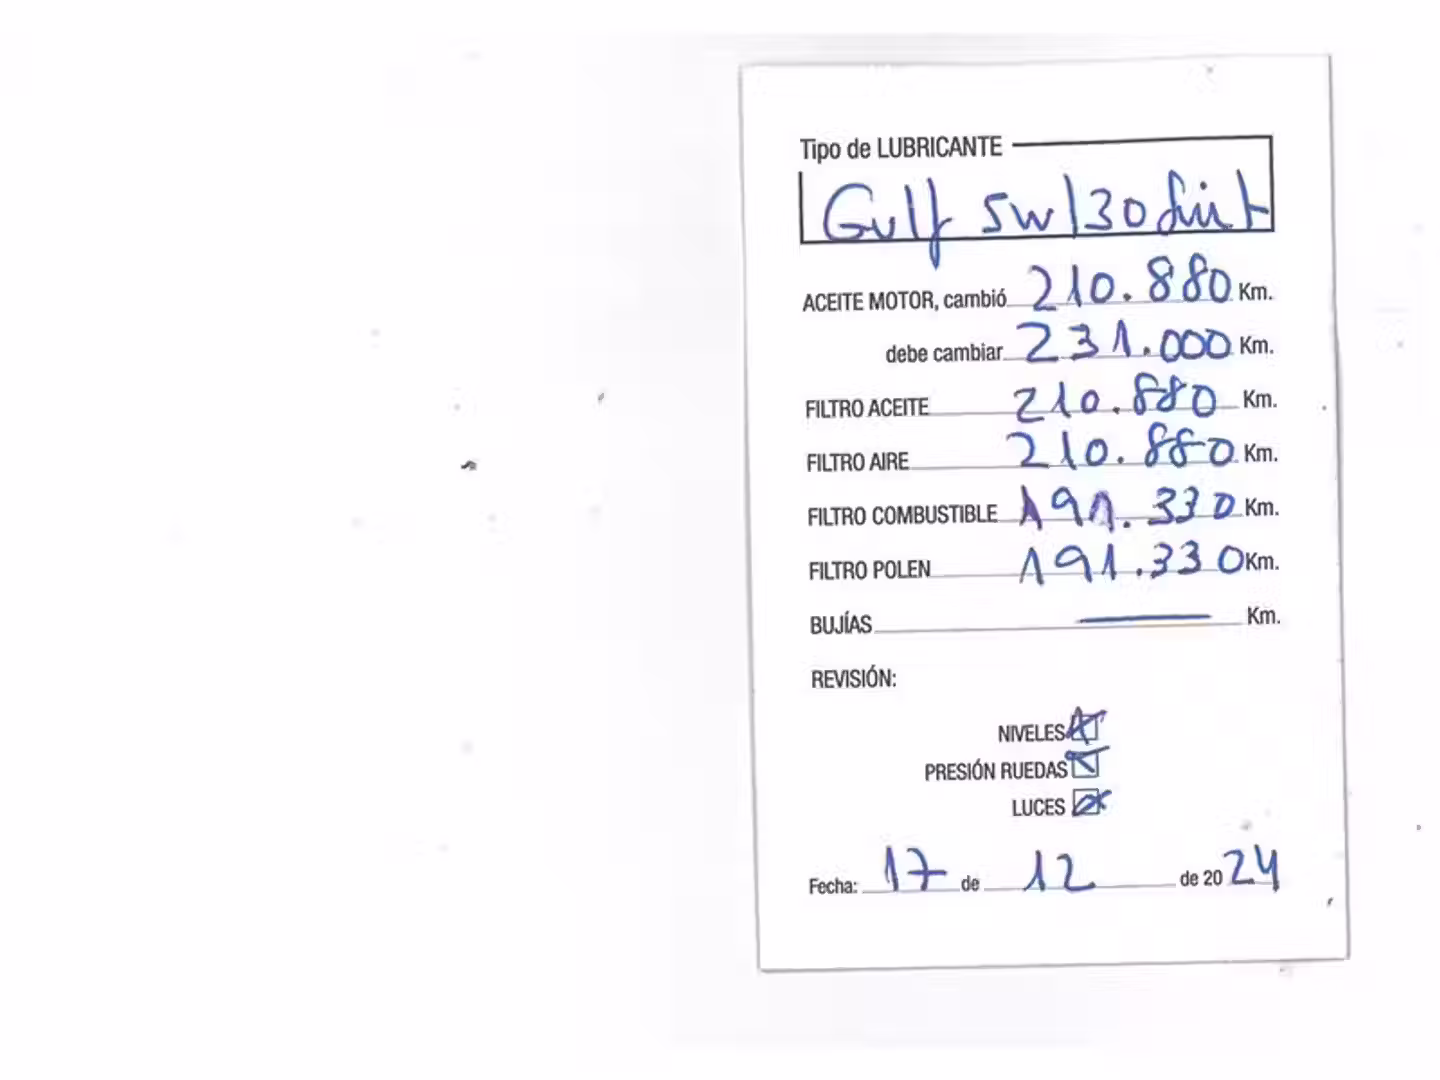 Tipo de LUBRICANTE
Gulf 5w/30
ACEITE MOTOR, cambió 210.880 Km.
debe cambiar 231.000 Km.
FILTRO ACEITE 210.880 Km.
FILTRO AIRE 210.880 Km.
FILTRO COMBUSTIBLE 191.330 Km.
FILTRO POLEN 191.330 Km.
BUJÍAS — Km.
REVISIÓN:
NIVELES
PRESIÓN RUEDAS
LUCES
Fecha: 17 de 12 de 2024